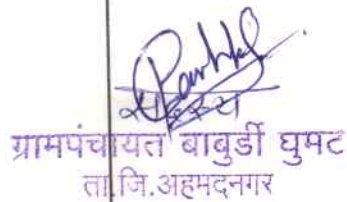 सदस्य
ग्रामपंचायत बाबुर्डी घुमट
ता.जि.अहमदनगर